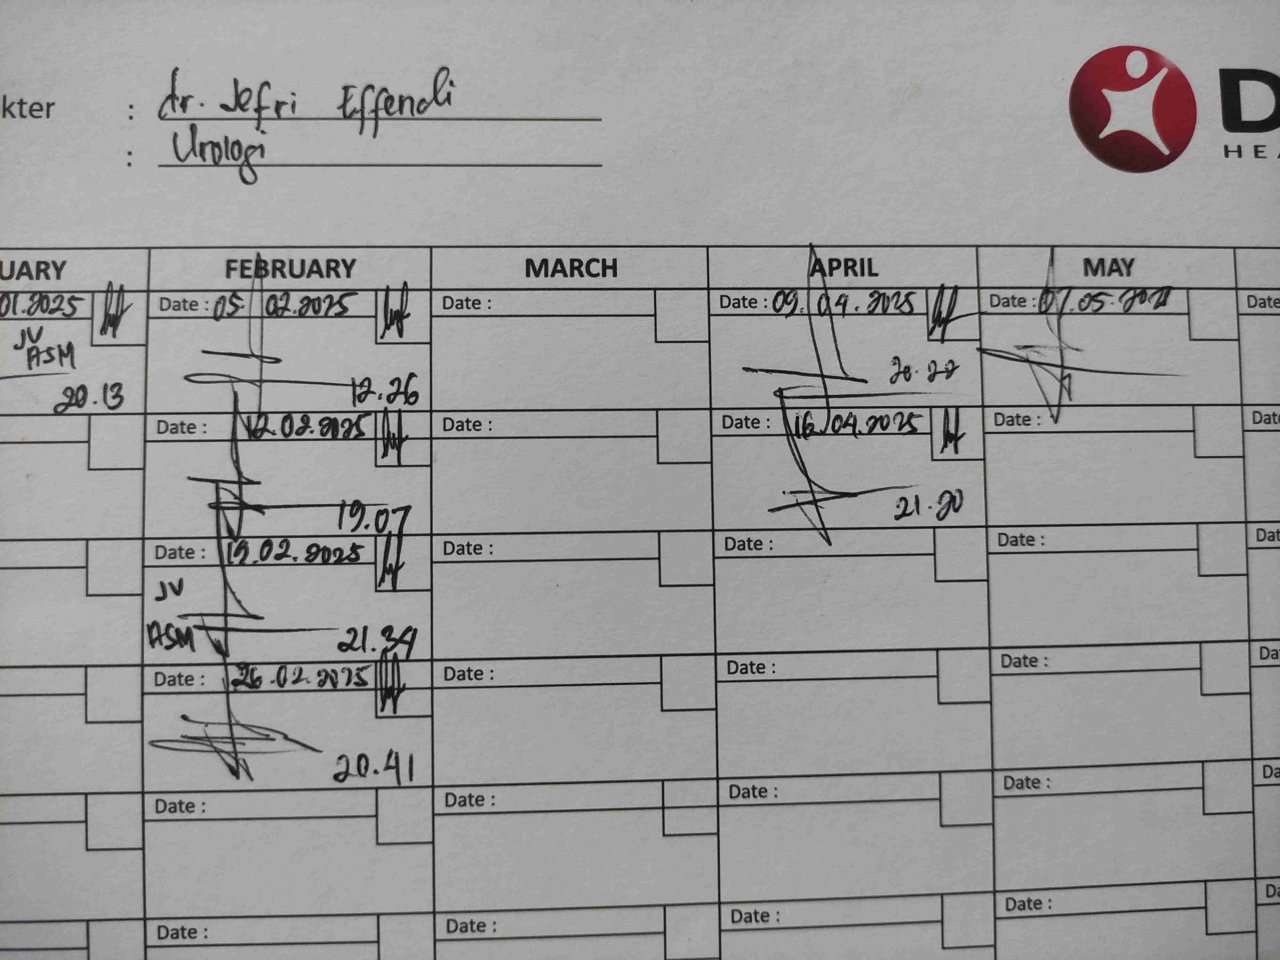 kter : dr. Jefri Effendi
: Urologi
D
HEA
UARY FEBRUARY MARCH APRIL MAY
01.2025 Date : 05 02.2025 Date : Date : 09.04.2025 Date : 07.05. Date
JV
ASM
20.13 12.26 20.22
Date : 12.02.2025 Date : Date : 16.04.2025 Date : Dat
19.07 21.20
Date : 19.02.2025 Date : Date : Date : Dat
JV
ASM 21.34
Date : 26.02.2025 Date : Date : Date : Da
20.41
Date : Date : Date : Date : Da
Date : Date : Date : Date : Da